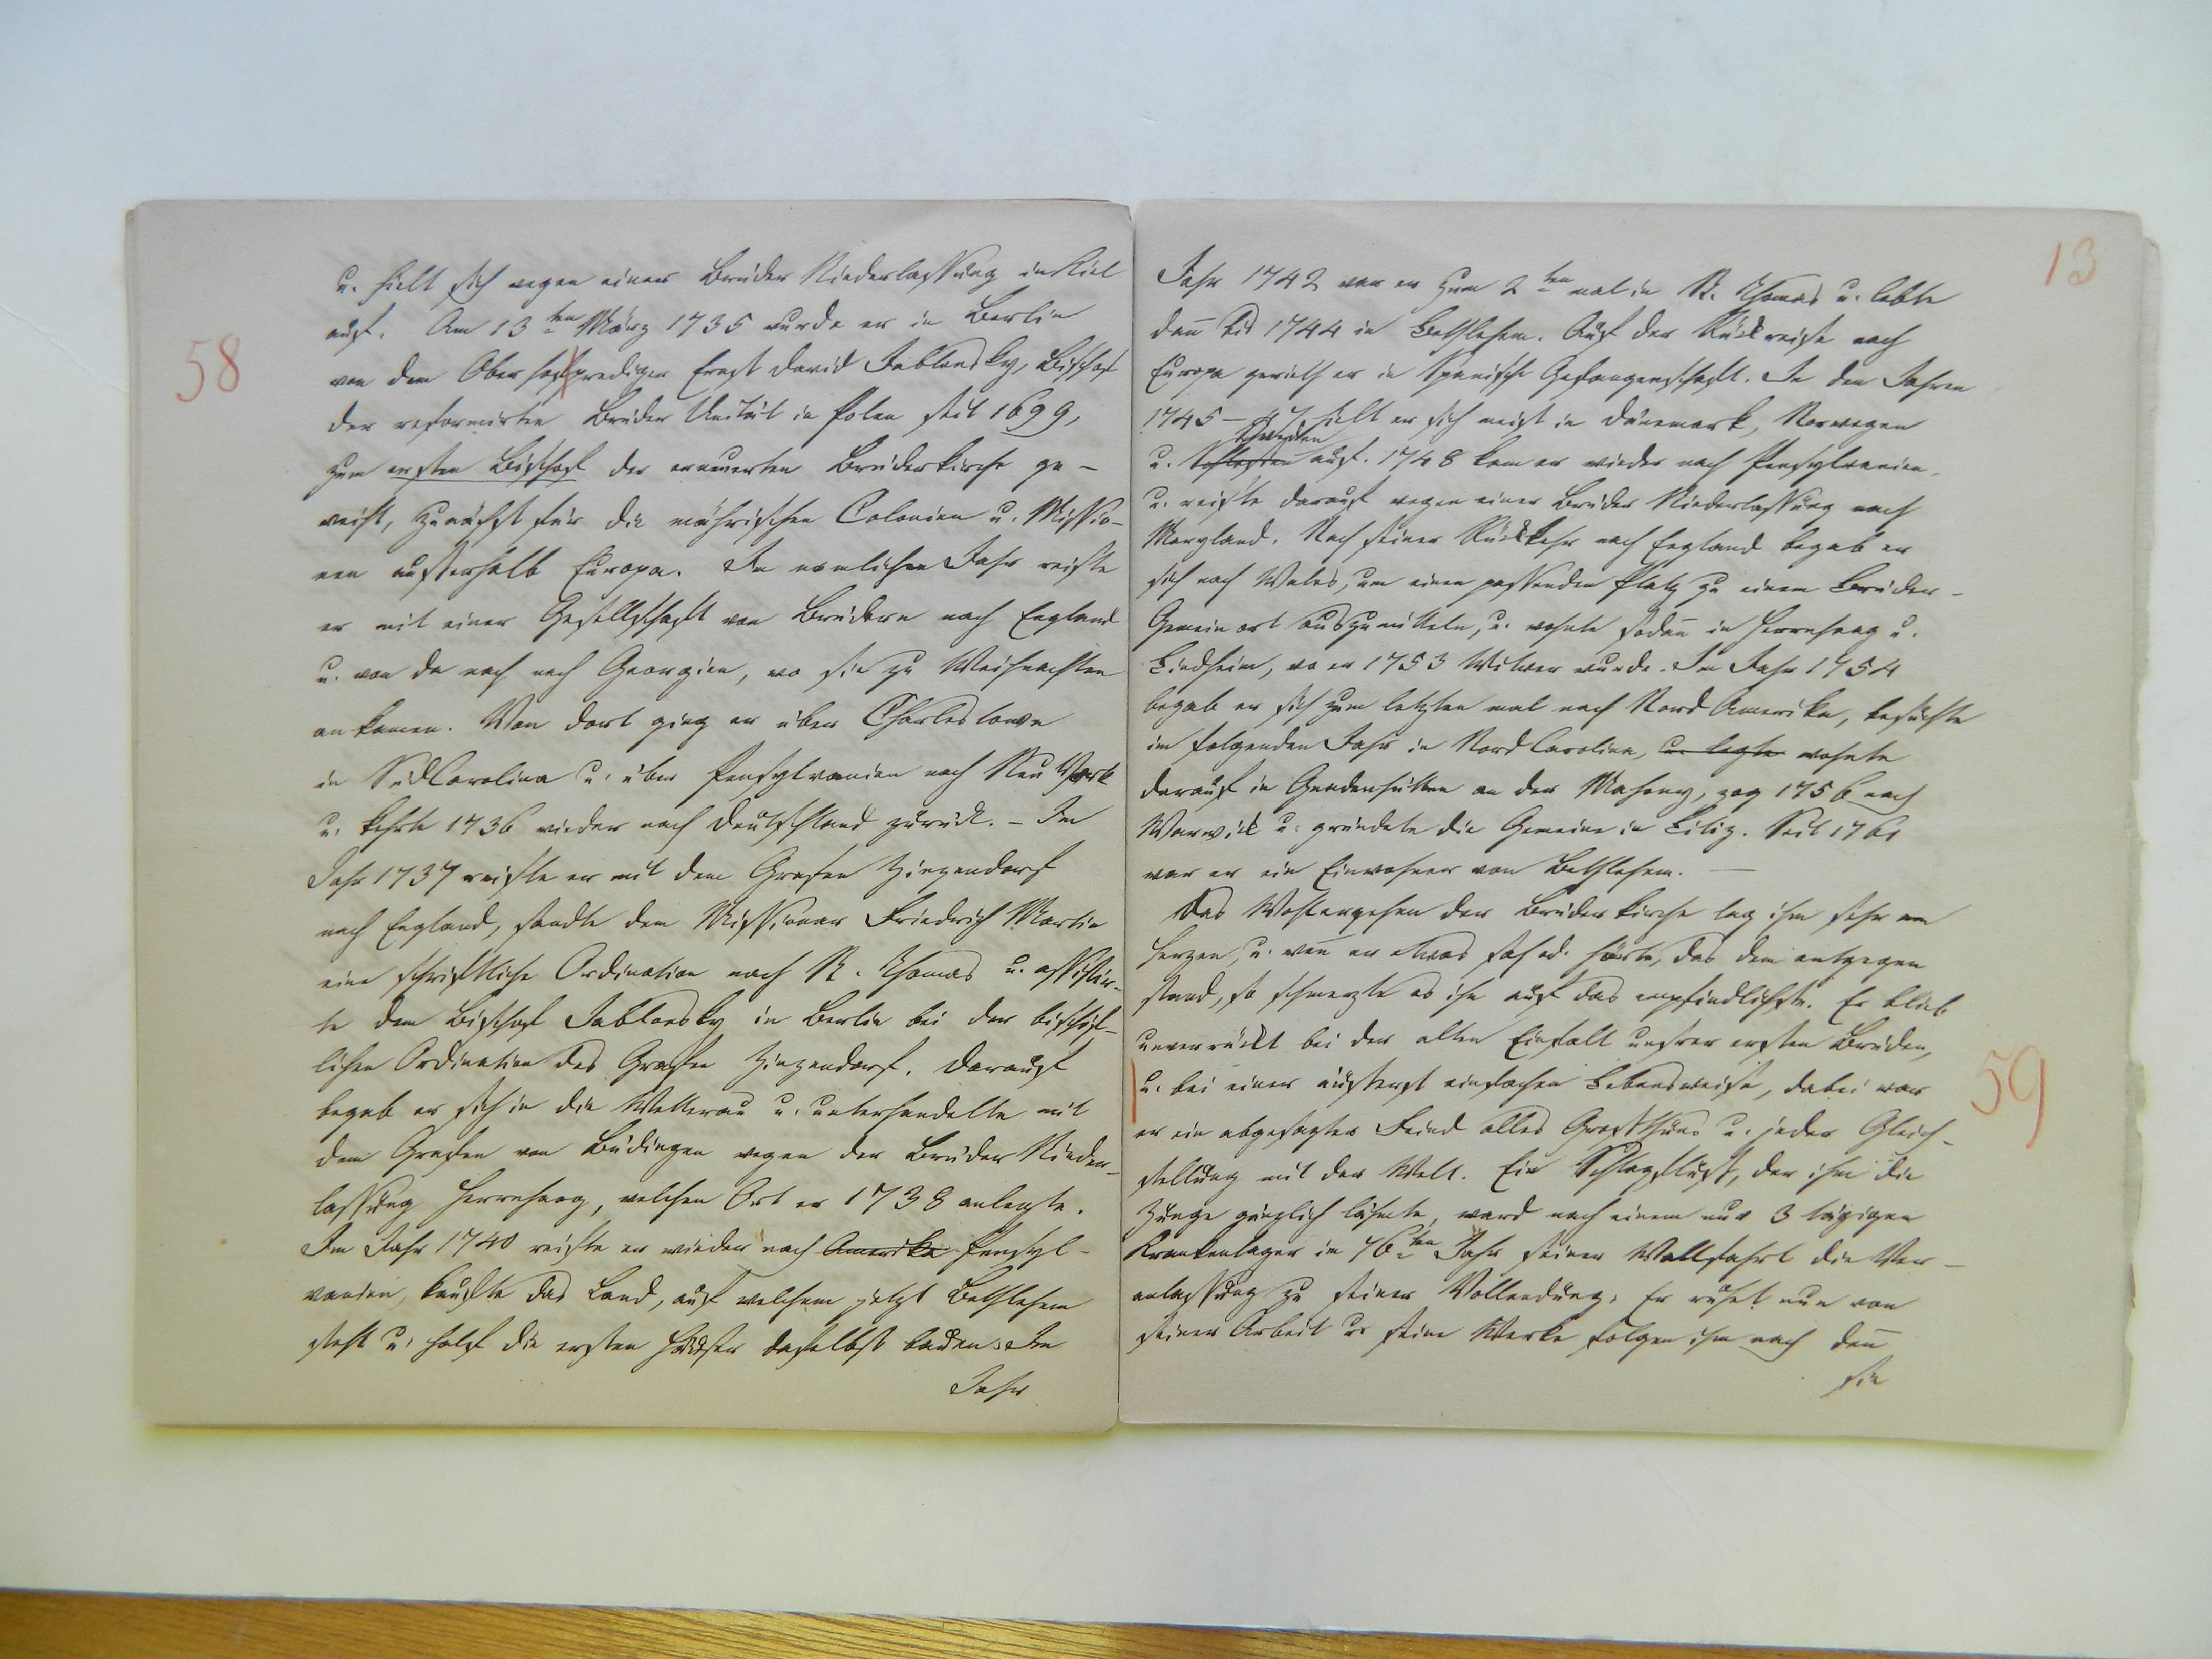 58
u. hielt sich wegen einer Brüder Niederlassung in Kiel
auf. Am 13ten März 1735 wurde er in Berlin
von dem Oberhofprediger Ernst David Jablonsky, Bischof
der reformirten Brüder Unität in Polen seit 1699,
zum ersten Bischof der erneuerten Brüderkirche ge-
weiht, zunächst für die mährischen Colonien u. Missio-
nen außerhalb Europa. In nemlichen Jahr reiste
er mit einer Gesellschaft von Brüdern nach England
u. von da nach nach Georgien, wo sie zu Weihnachten
an kamen. Von dort ging er über Charlestown
in SüdCarolina u. über Pensylvanien nach Neu York
u. kehrte 1736 wieder nach Deutschland zurück. – Im
Jahr 1737 reiste er mit dem Grafen Zinzendorf
nach England, sandte dem Missionar Friedrich Martin
eine schriftliche Ordination nach St. Thomas u. assistir-
te dem Bischof Jablonsky in Berlin bei der bischöf-
lichen Ordination des Grafen Zinzendorf. Darauf
begab er sich in die Wetterau u. unterhandelte mit
dem Grafen von Büdingen wegen der Brüder Nieder-
lassung Herrnhaag, welchen Ort er 1738 anlegte.
Im Jahr 1740 reiste er wieder nach Amerika Pensyl-
vanien, kaufte das Land, auf welchem jetzt Bethlehem
steht u. half die ersten Häuser daselbst bauen. Im
Jahr
13
Jahr 1742 war er zum 2ten mal in St. Thomas u. lebte
dañ bis 1744 in Bethlehem. Auf der Rückreise nach
Europa gerieth er in Spanische Gefangenschaft. In den Jahren
1745–47 hielt er sich meist in Dänemark, Norwegen
Schweden
u. Schlesien auf. 1748 kam er wieder nach Pensylvanien
u. reiste darauf wegen einer Brüder Niederlassung nach
Maryland. Nach seiner Rückkehr nach England begab er
sich nach Wales, um einen passenden Platz zu einem Brüder-
Gemein ort auszumitteln, u. wohnte sodañ in Herrnhaag u.
Lindheim, wo er 1753 Witwer wurde. Im Jahr 1754
begab er sich zum letzten mal nach Nord Amerika, besuchte
im folgenden Jahr in Nord Carolina, u. legte wohnte
darauf in Gnadenhütten an der Mahony, zog 1756 nach
Warwick u. gründete die Gemeine in Litiz. Seit 1761
war er ein Einwohner von Bethlehem. —
Das Wohlergehen der Brüderkirche lag ihm sehr am
Herzen, u. weñ er etwas sah od. hörte, das dem entgegen
stand, so schmerzte es ihn auf das empfindlichste. Er blieb
unverrückt bei der alten Einfalt unsrer ersten Brüder,
u. bei einer äußerst einfachen Lebensweise, dabei war
59
er ein abgesagter Feind alles Großthuns u. jeder Gleich-
stellung mit der Welt. Ein Schlagfluß, der ihm die
Zunge gänzlich lähmte, ward nach einem nur 3 tägigen
Krankenlager im 76ten Jahr seiner Wallfahrt die Ver-
anlassung zu seiner Vollendung. Er ruhet nun von
seiner Arbeit u. seine Werke folgen ihm nach deñ
sie